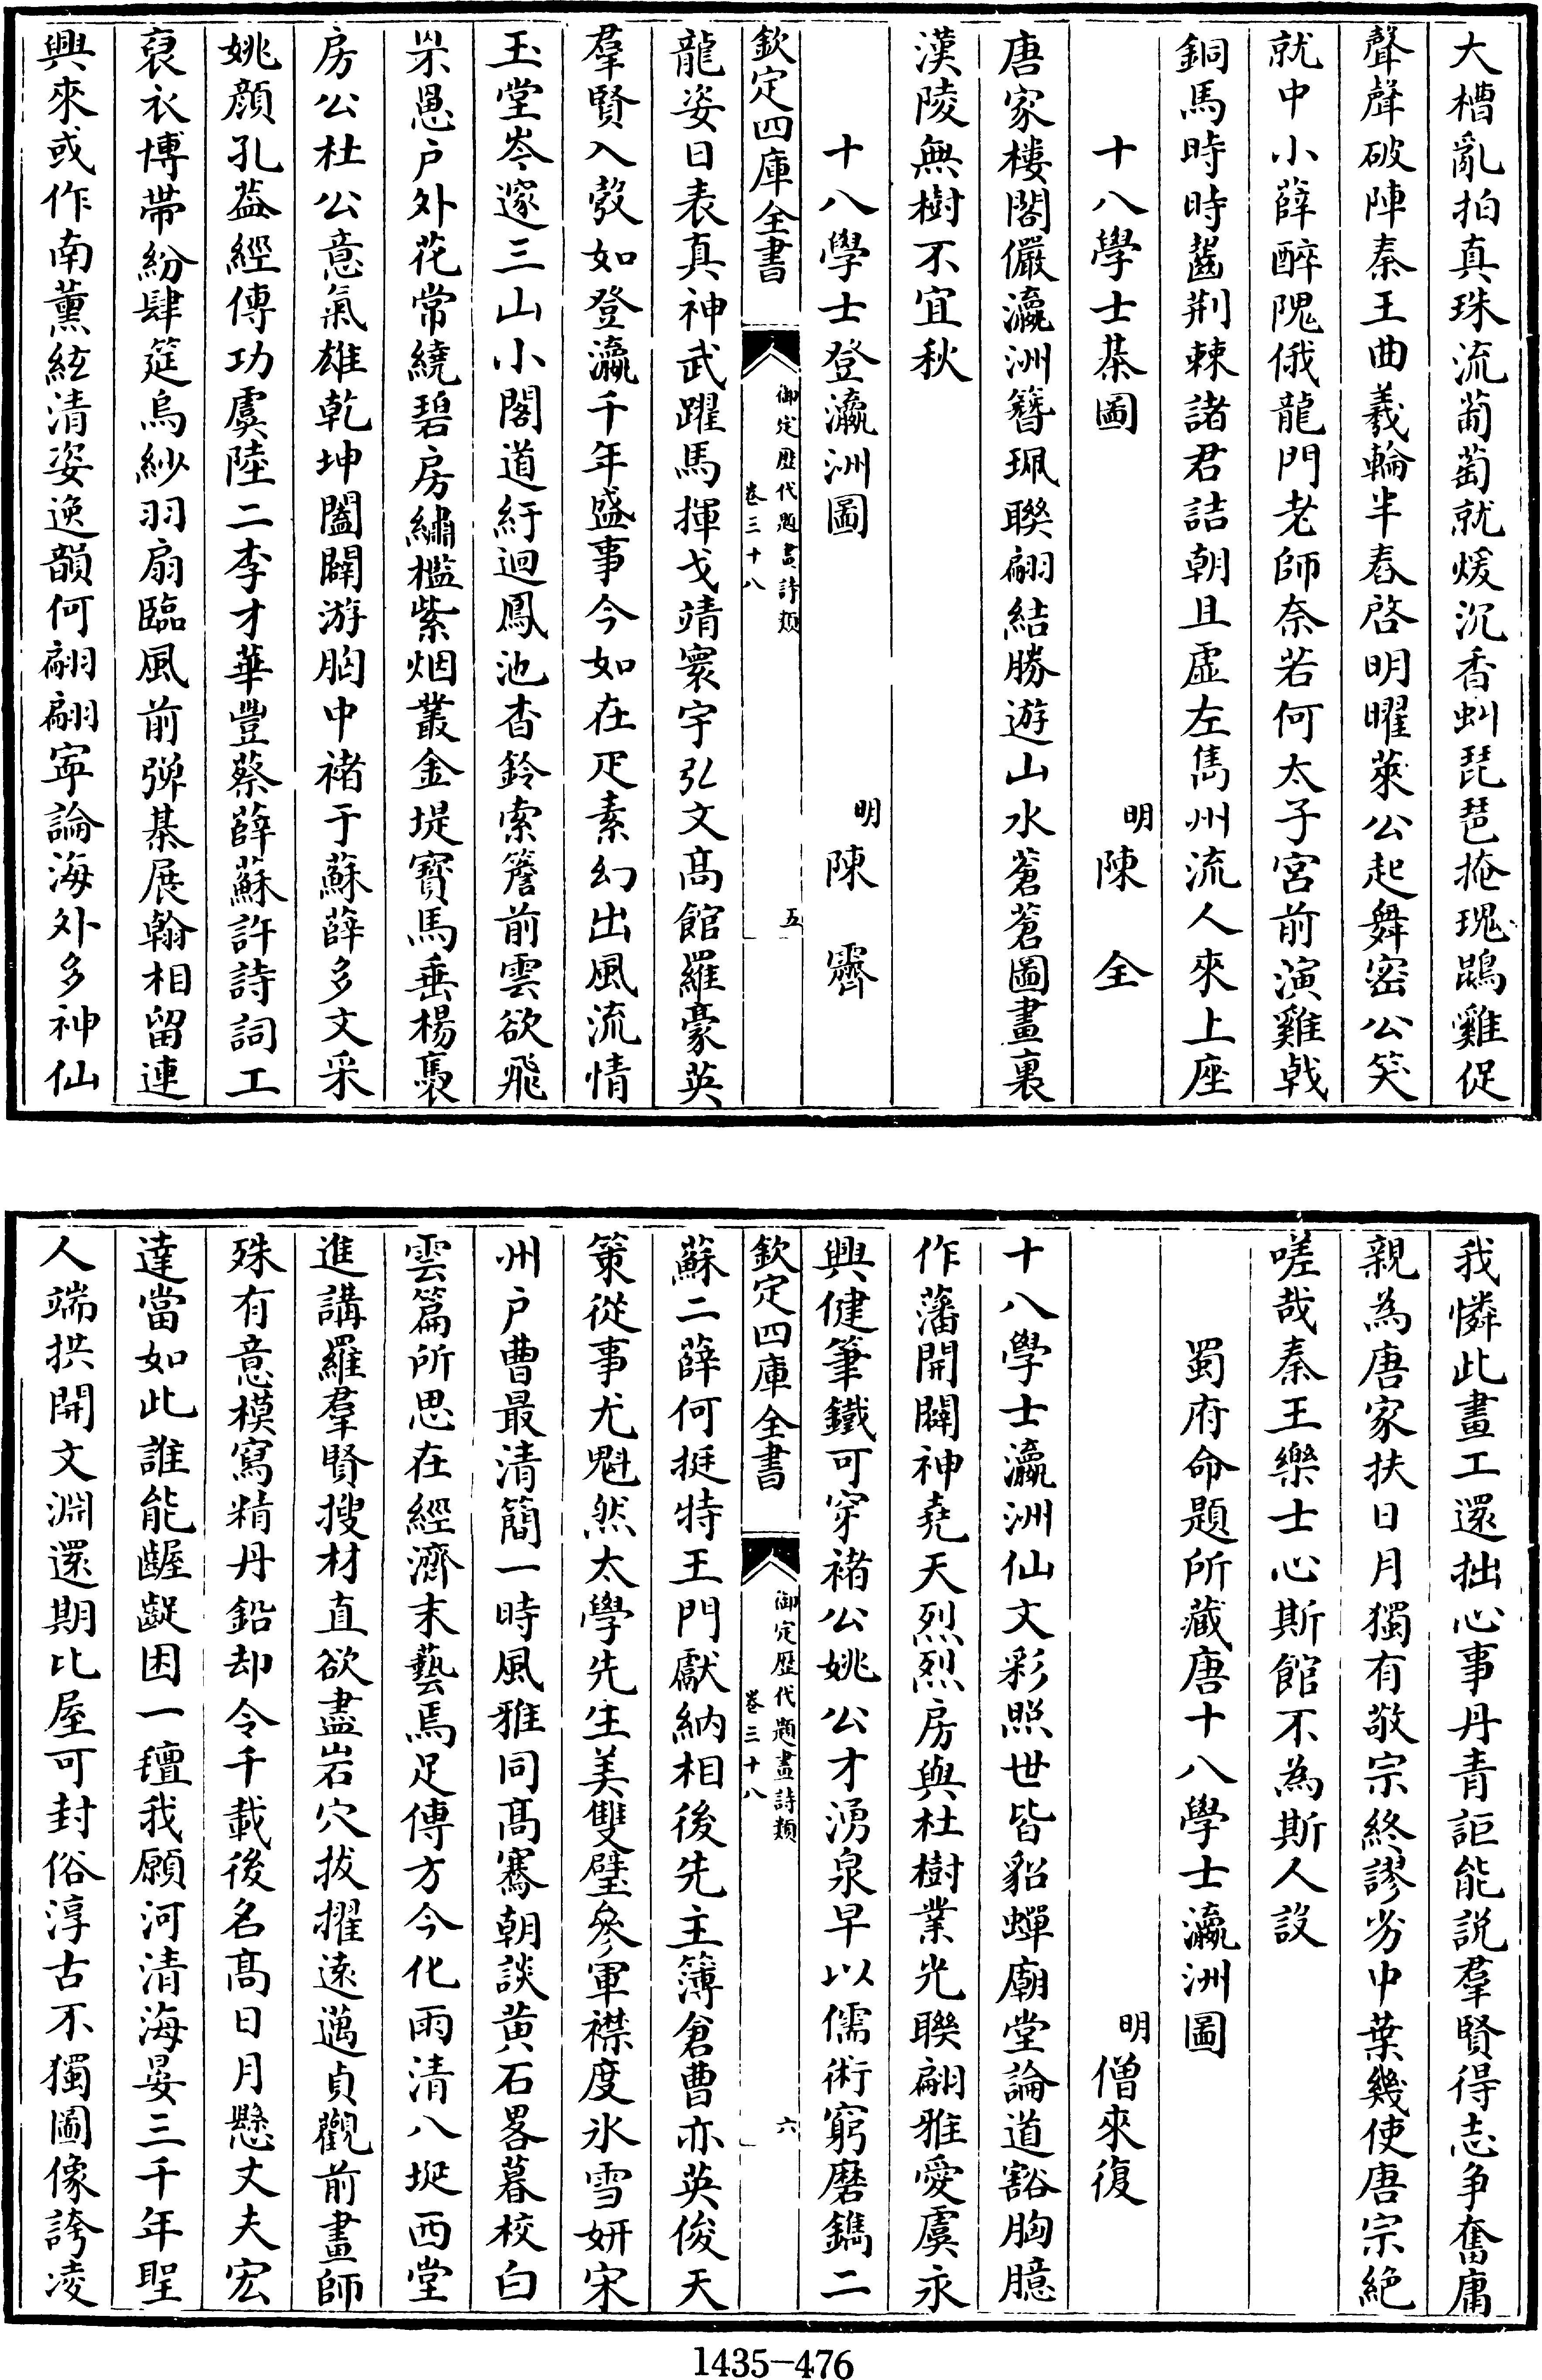 大槽亂拍真珠流葡萄就煖沉香虯琵琶掩瑰鵾雞促
聲聲破陣秦王曲羲輪半舂啓明曜萊公起舞密公笑
就中小薛醉隗俄龍門老師奈若何太子宮前演雞戟
銅馬時時齧荆棘諸君詰朝且虛左雋州流人來上座
十八學士棊圖
明陳全
唐家樓閣儼瀛洲簪珮聯翩結勝遊山水蒼蒼圖畫裏
漢陵無樹不宜秋
十八學士登瀛洲圖
明陳霽
欽定四庫全書
御定歴代題畫詩類
卷三十八
五
龍姿日表真神武躍馬揮戈靖寰宇弘文髙館羅豪英
羣賢入彀如登瀛千年盛事今如在疋素幻出風流情
玉堂岑邃三山小閣道紆迴鳳池杳鈴索簷前雲欲飛
罘罳户外花常繞碧房繡檻紫烟叢金堤寳馬垂楊裊
房公杜公意氣雄乾坤闔闢游胸中褚于蘇薛多文采
姚顔孔葢經傳功虞陸二李才華豐蔡薛蘇許詩詞工
裒衣博帶紛肆筵烏紗羽扇臨風前彈棊展翰相留連
興來或作南薰絃清姿逸韻何翩翩寜論海外多神仙
我憐此畫工還拙心事丹青詎能説羣賢得志争奮庸
親為唐家扶日月獨有敬宗終謬劣中葉幾使唐宗絶
嗟哉秦王樂士心斯館不為斯人設
蜀府命題所藏唐十八學士瀛洲圖
明僧來復
十八學士瀛洲仙文彩照世皆貂蟬廟堂論道豁胸臆
作藩開闢神堯天烈烈房與杜樹業光聯翩雅愛虞永
興健筆鐵可穿褚公姚公才湧泉早以儒術窮磨鐫二
欽定四庫全書
御定歴代題畫詩類
卷三十八
六
蘇二薛何挺特王門獻納相後先主簿倉曹亦英俊天
策從事尤魁然太學先生美雙璧參軍襟度氷雪妍宋
州户曹最清簡一時風雅同髙騫朝談黄石畧暮校白
雲篇所思在經濟末藝焉足傳方今化雨清八埏西堂
進講羅羣賢搜材直欲盡岩穴拔擢遠邁貞觀前畫師
殊有意模寫精丹鉛却令千載後名髙日月懸丈夫宏
達當如此誰能齷齪困一㕓我願河清海晏三千年聖
人端拱開文淵還期比屋可封俗淳古不獨圖像誇凌
1435-476